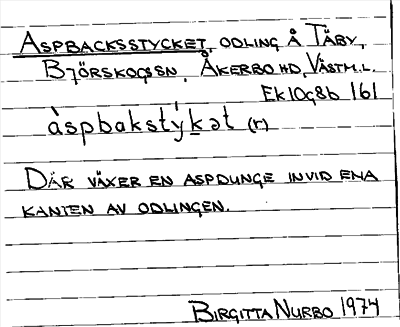 ASPBACKSSTYCKET, ODLING Å TÄBY,
BJÖRSKOGSSN, ÅKERBO HD, VÄSTM.L.
EK 10G8b 161
àspbakstýkət (r)
DÄR VÄXER EN ASPDUNGE INVID ENA
KANTEN AV ODLINGEN.
BIRGITTA NURBO 1974